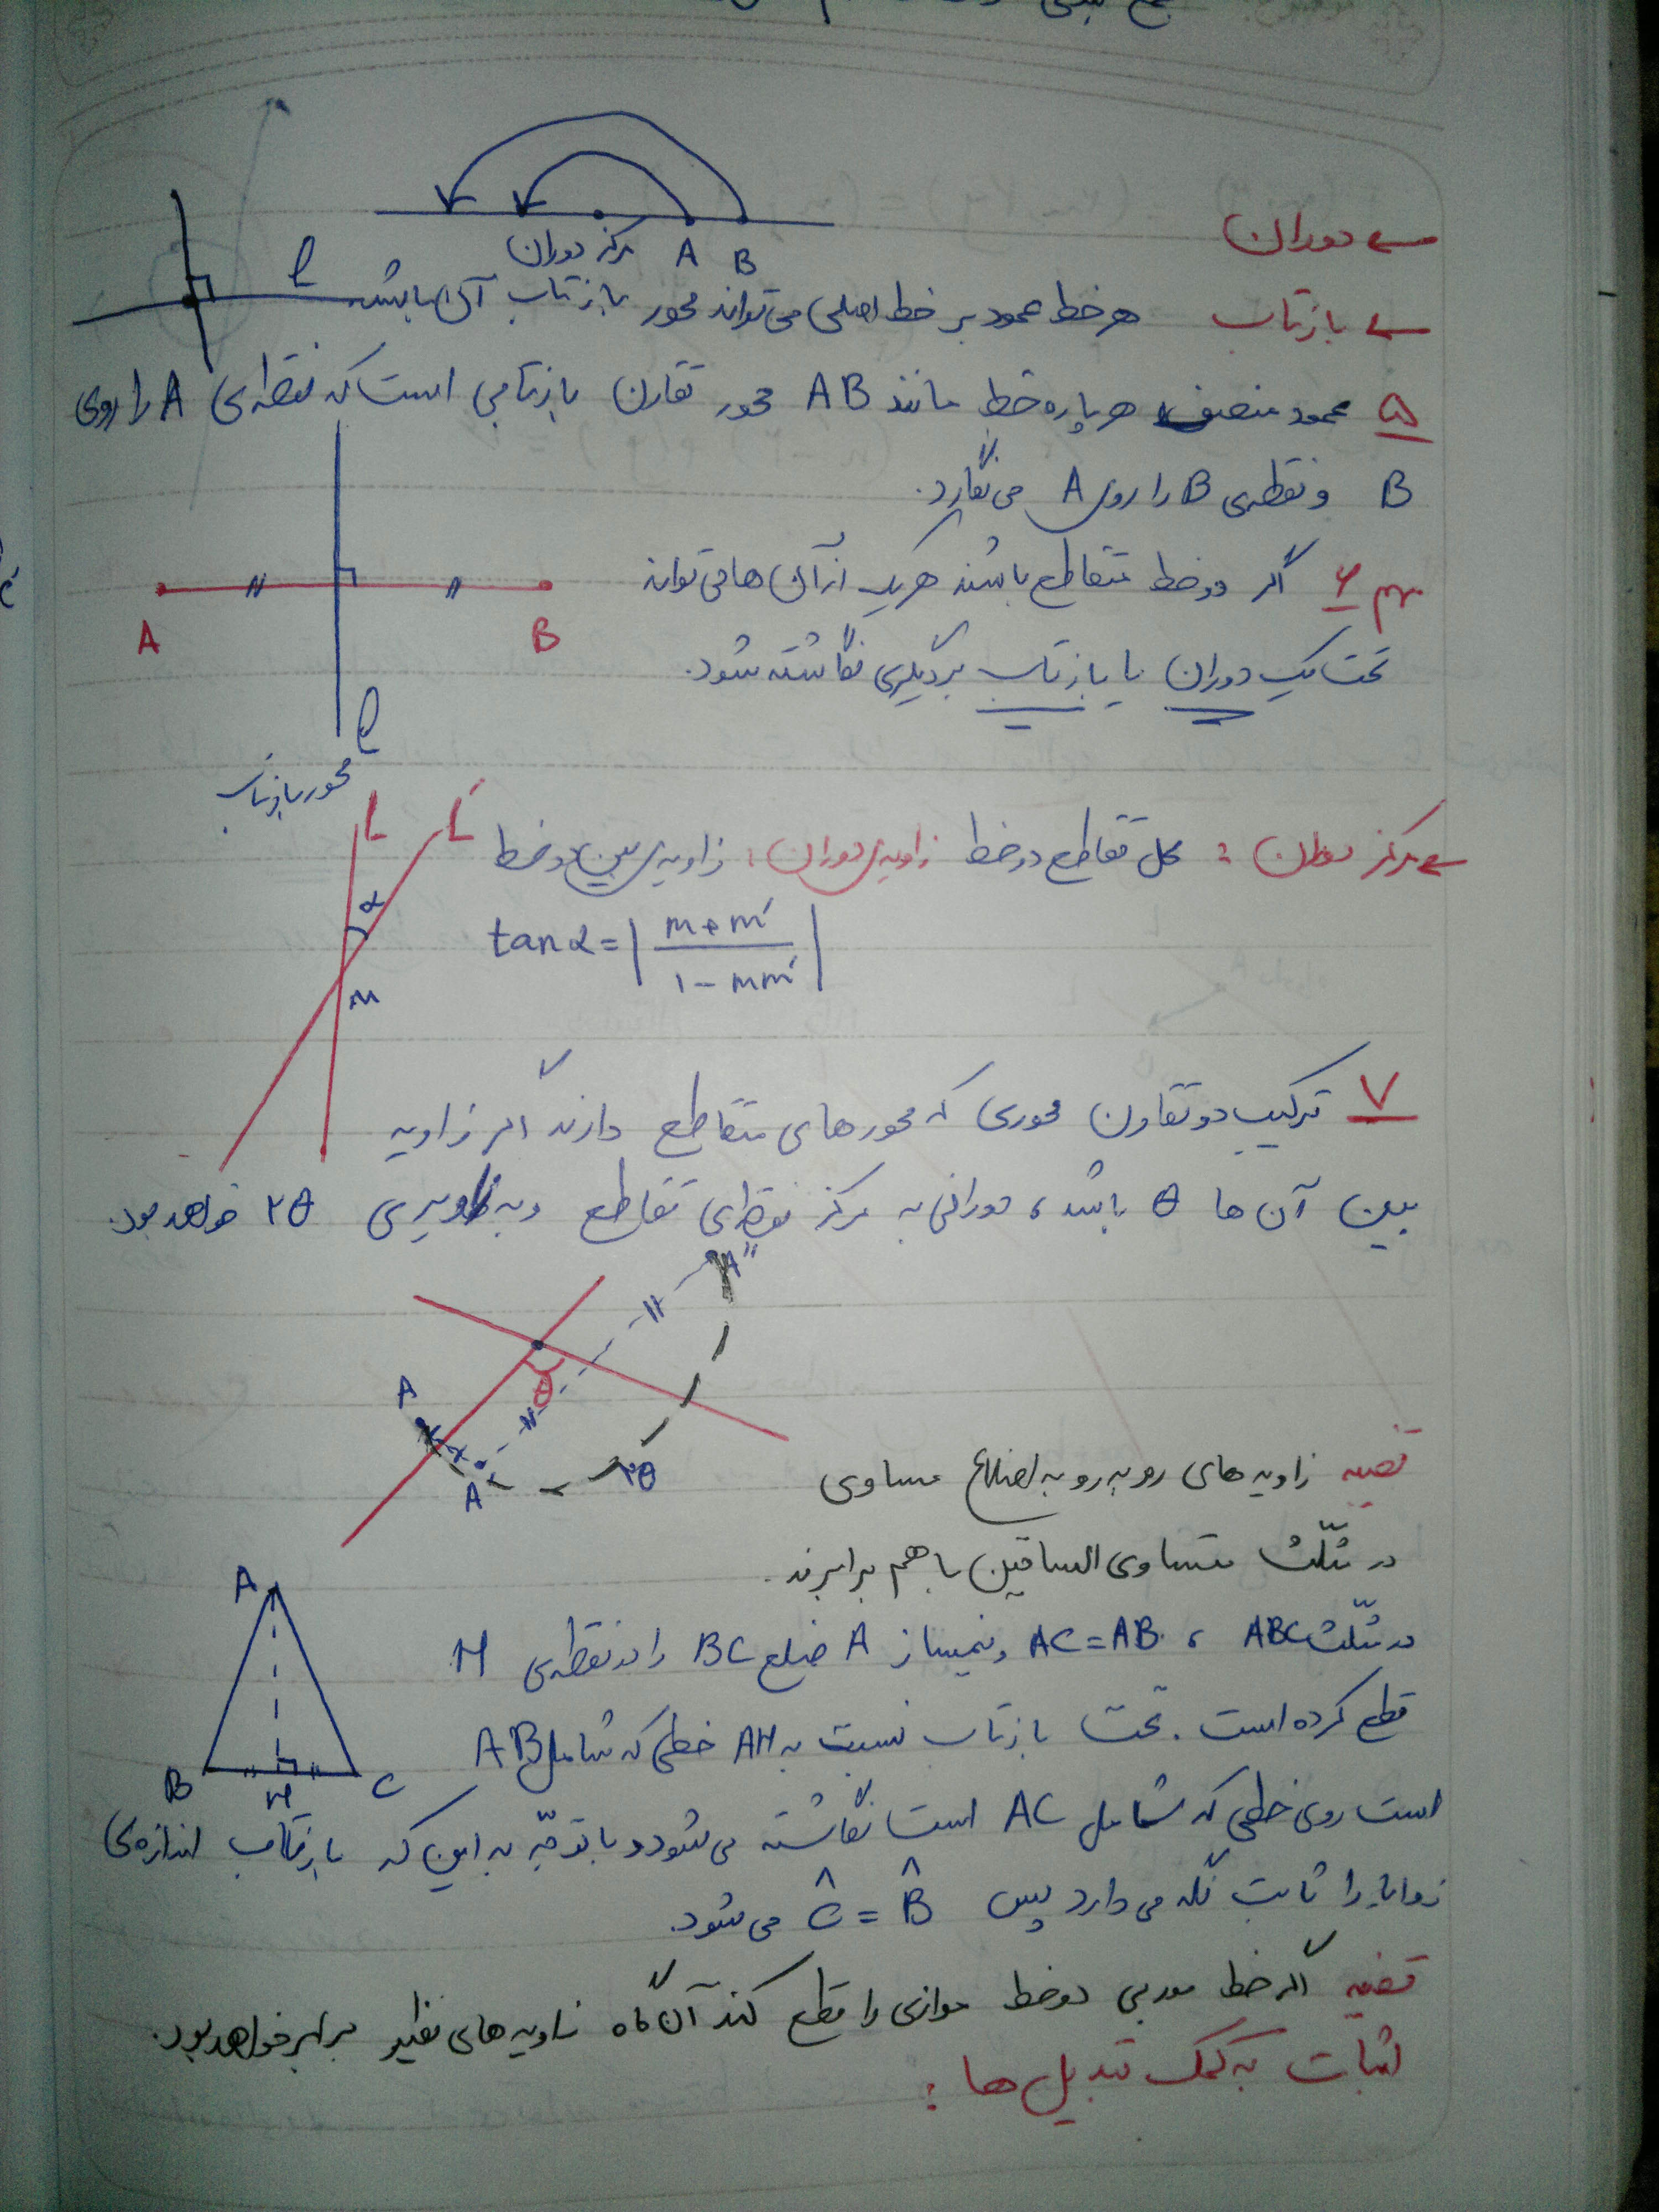 مرکز دوران A B
← دوران
← بازتاب هر خط عمود بر خط اصلی می‌تواند محور بازتاب آن باشد.
l
۵ عمود منصف هر پاره خط مانند AB محور تقارن بازتابی است که نقطه‌ی A را روی
B و نقطه‌ی B را روی A می‌نگارد.
مهم ۶ اگر دو خط متقاطع باشند هریک از آن ها می تواند
تحت یک دوران یا بازتاب بر دیگری نگاشته شود.
A B
l
محور بازتاب
← مرکز دوران : محل تقاطع دو خط زاویه‌ی دوران : زاویه‌ی بین دو خط
L L′
α
M
tan α = | m + m′ / ۱ - mm′ |
۷ ترکیب دو تقارن محوری که محورهای متقاطع دارند اگر زاویه
بین آن ها θ باشد، دورانی به مرکز نقطه‌ی تقاطع و به زاویه‌ی ۲θ خواهد بود.
A″
θ
A
A′ ۲θ
قضیه زاویه های رو به رو به اضلاع مساوی
در مثلّث متساوی الساقین با هم برابرند.
در مثلّث ABC ، AC = AB و نیمساز A ضلع BC را در نقطه‌ی H
قطع کرده است. تحت بازتاب نسبت به AH خطی که شامل AB
است روی خطی که شامل AC است نگاشته می شود و با توجّه به این که بازتاب اندازه‌ی
زوایا را ثابت نگه می دارد پس Ĉ = B̂ می شود.
A
B H C
قضیه اگر خط موربی دو خط موازی را قطع کند آن گاه زاویه های نظیر برابر خواهد بود.
اثبات به کمک تبدیل ها :